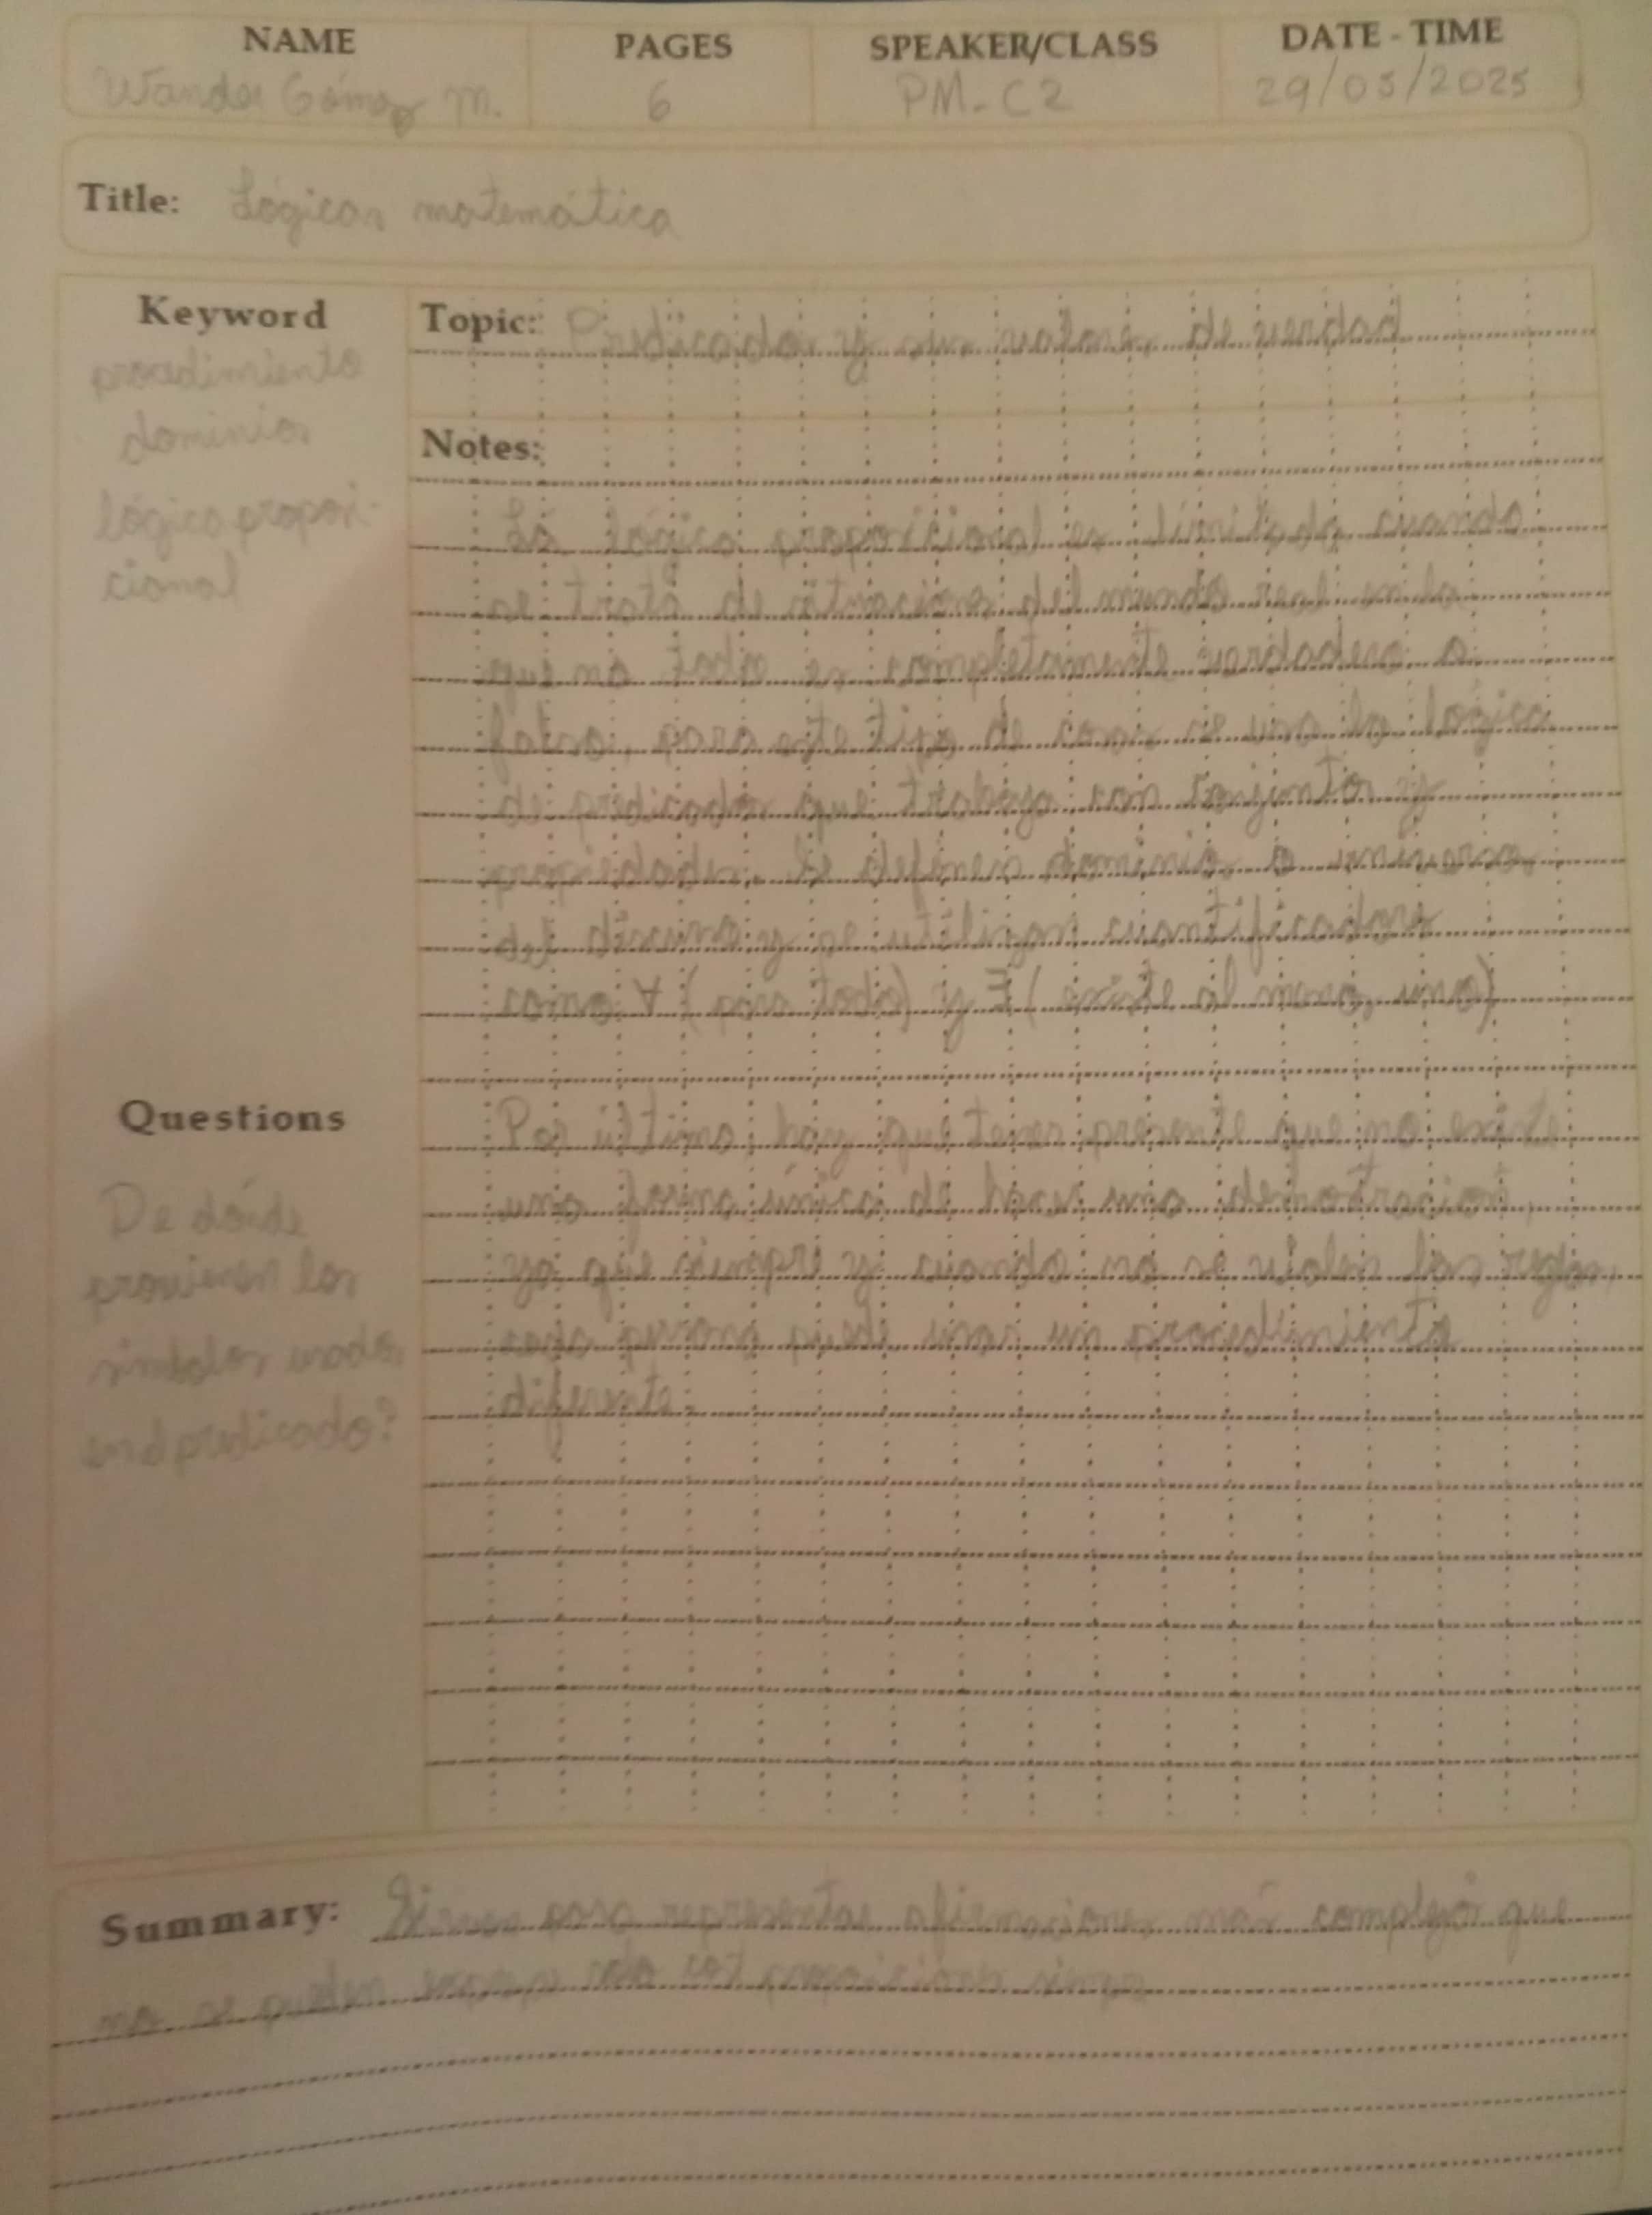 NAME PAGES SPEAKER/CLASS DATE - TIME
Wander Gómez M. 6 PM-C2 29/05/2025
Title: Lógica matemática
Keyword
procedimiento
dominio
lógica proposi-
cional
Topic: Predicados y sus valores de verdad
Notes:
La lógica proposicional es limitada cuando
se trata de enunciados del mundo real
que no todo es completamente verdadero o
falso, para este tipo de casos se usa la lógica
de predicados que trabaja con conjuntos y
propiedades. Se definen dominio o universo
del discurso y se utilizan cuantificadores
como ∀ (para todo) y ∃ (existe al menos uno)
Por último, hay que tener presente que no existe
una forma única de hacer una demostración,
ya que siempre y cuando no se violen las reglas,
cada persona puede usar un procedimiento
diferente.
Questions
De dónde
provienen los
símbolos usados
en el predicado?
Summary: Sirven para representar afirmaciones más complejas que
no se pueden